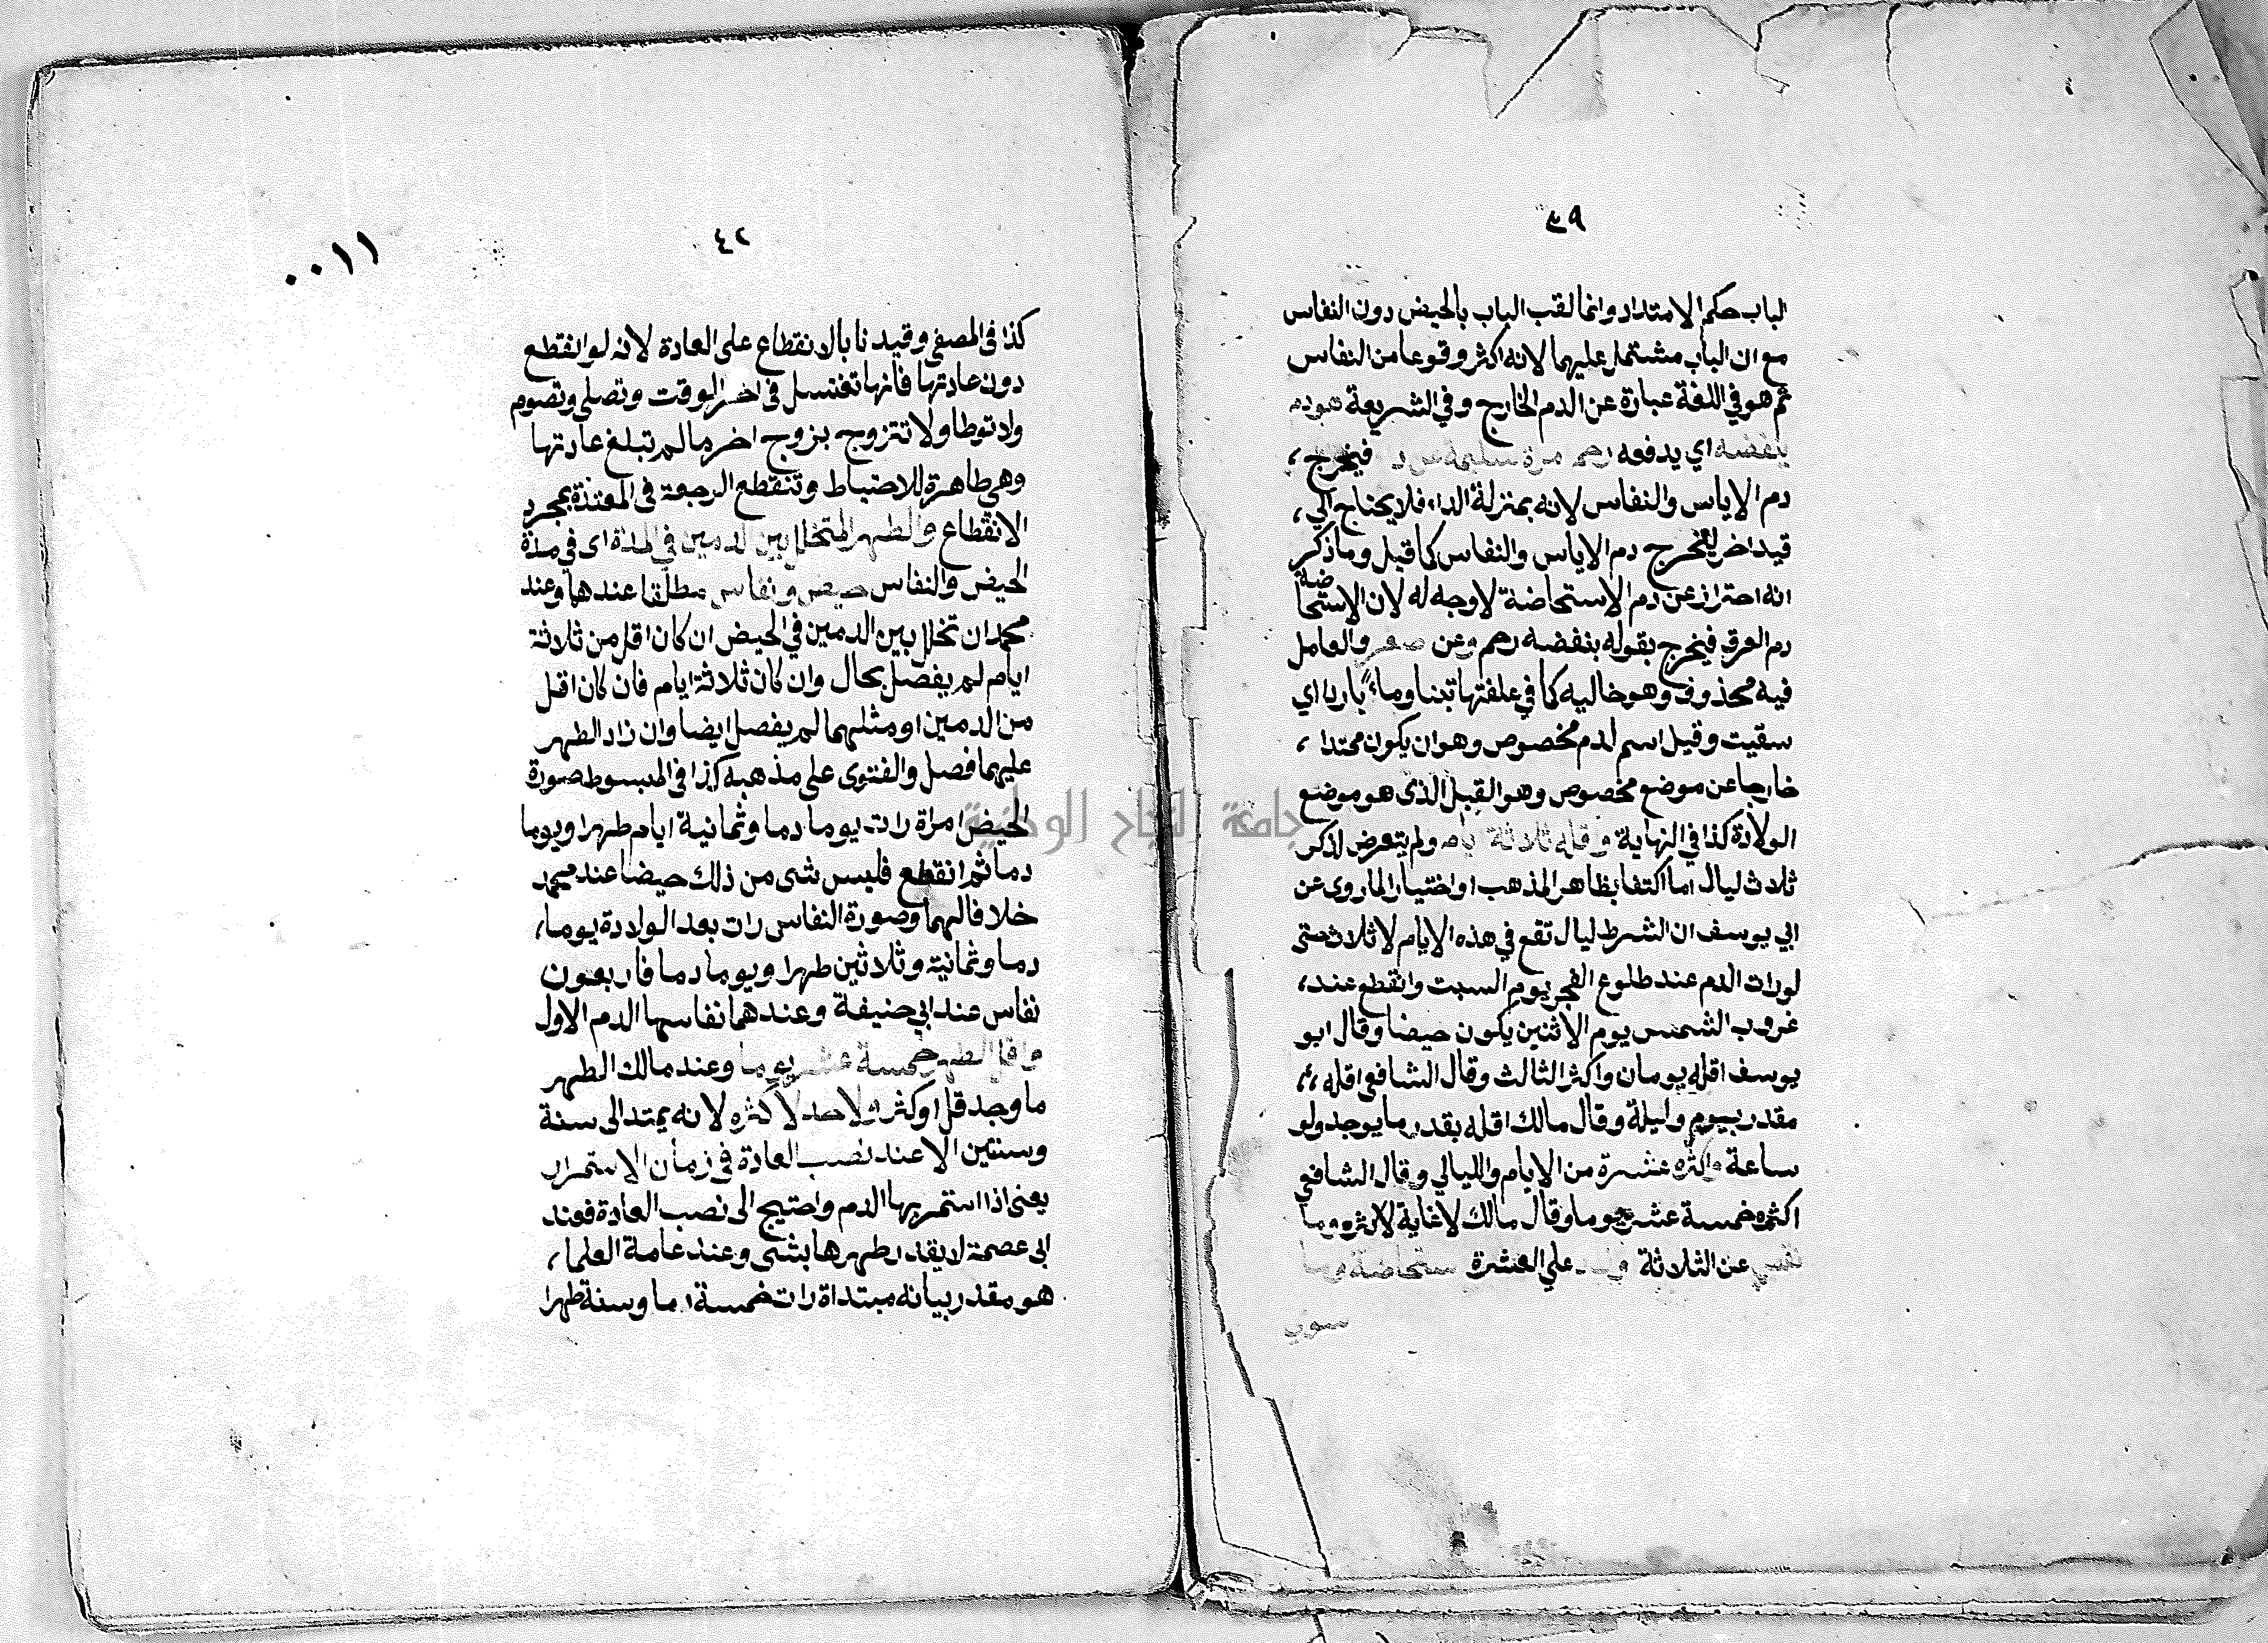 ٣٩
الباب حكم الامتداد وانما لقب الباب بالحيض دون النفاس
مع ان الباب مشتمل عليهما لانه اكثر وقوعا من النفاس
ثم هو في اللغة عبارة عن الدم الخارج وفي الشريعة هو دم
ينفضه اي يدفعه رحم مراة سليمة عن د فيخرج
دم الاياس والنفاس لانه بمنزلة الداء فلا يحتاج الي
قيد اخر ليخرج دم الاياس والنفاس كما قيل وما ذكر
انه احتراز عن دم الاستحاضة لا وجه له لان الاستحاضة
دم العرق فيخرج بقوله ينفضه رحم وعن صغر والعامل
فيه محذوف وهو خاليه كما في علفتها تبنا وماء باردا اي
سقيت وقيل اسم لدم مخصوص وهو ان يكون ممتدا
خارجا عن موضع مخصوص وهو القبل الذى هو موضع
الولادة كذا في النهاية واقله ثلاثة ايام ولم يتعرض لذكر
ثلاث ليال اما اكتفا بظاهر المذهب او اختيار الما روى عن
ابي يوسف ان الشرط ليال تقع في هذه الايام لا ثلاث حتى
لو رات الدم عند طلوع الفجر يوم السبت وانقطع عند
غروب الشمس يوم الاثنين يكون حيضا وقال ابو
يوسف اقله يومان واكثر الثالث وقال الشافعي اقله
مقدر بيوم وليلة وقال مالك اقله بقدر ما يوجد ولو
ساعة واكثره عشرة من الايام والليالي وقال الشافعي
اكثره خمسة عشر يوما وقال مالك لا غاية لاكثره وما
نقص عن الثلاثة وزاد علي العشرة استحاضة وما
سوي
٤٢
٠٠١١
كذا في المصفى وقيدنا بالانقطاع على العادة لانه لو انقطع
دون عادتها فانها تغتسل في اخر الوقت وتصلي وتصوم
ولا توطا ولا تتزوج بزوج اخر ما لم تبلغ عادتها
وهي طاهرة للاحتياط وتنقطع الرجعة في المعتدة بمجرد
الانقطاع والطهر المتخلل بين الدمين في المدة اى في مدة
الحيض والنفاس حيض ونفاس مطلقا عندهما وعند
محمد ان تخلل بين الدمين في الحيض ان كان اقل من ثلاثة
ايام لم يفصل بحال وان كان ثلاثة ايام فان كان اقل
من الدمين او مثلهما لم يفصل ايضا وان زاد الطهر
عليهما فصل والفتوى على مذهبه كذا في المبسوط صورة
الحيض امراة رات يوما دما وثمانية ايام طهرا ويوما
دما ثم انقطع فليس شى من ذلك حيضا عند محمد
خلافا لهما وصورة النفاس رات بعد الولادة يوما
دما وثمانية وثلاثين طهرا ويوما دما فاربعون
نفاس عند ابي حنيفة وعندهما نفاسها الدم الاول
واقل الطهر خمسة عشر يوما وعند مالك الطهر
ما وجد قل او كثر ولا حد لاكثره لانه يمتد الى سنة
وسنتين الا عند نصب العادة في زمان الاستمرار
يعنى اذا استمر بها الدم واحتيج الى نصب العادة فعند
ابى عصمة لا يقدر طهرها بشى وعند عامة العلما
هو مقدر بيانه مبتداة رات خمسة دما وسنة طهرا
جامعة النجاح الوطنية